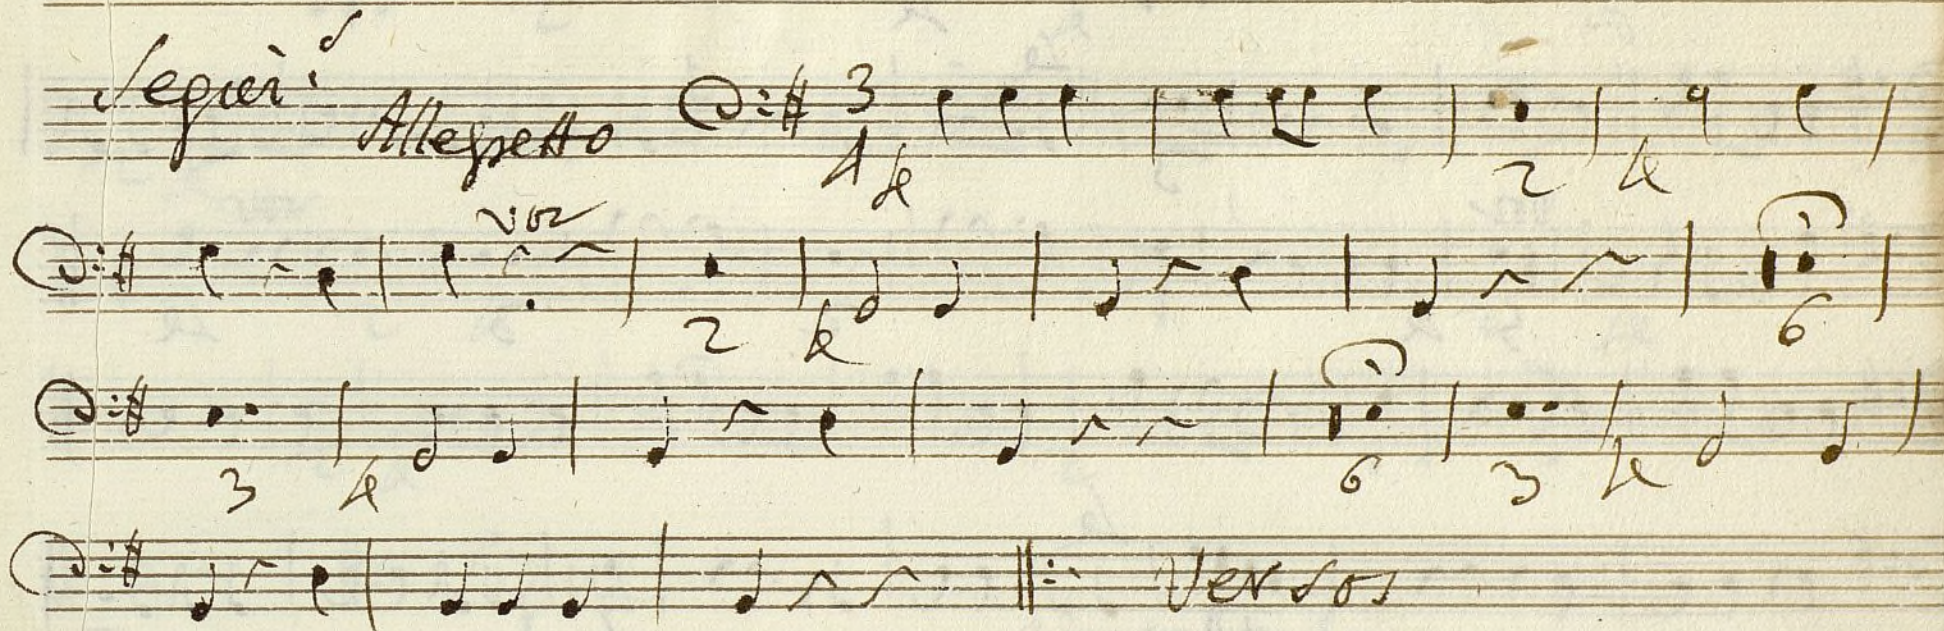 Seguis
Allegretto 3 4
2
voz
2
6
3 6 3
Versos